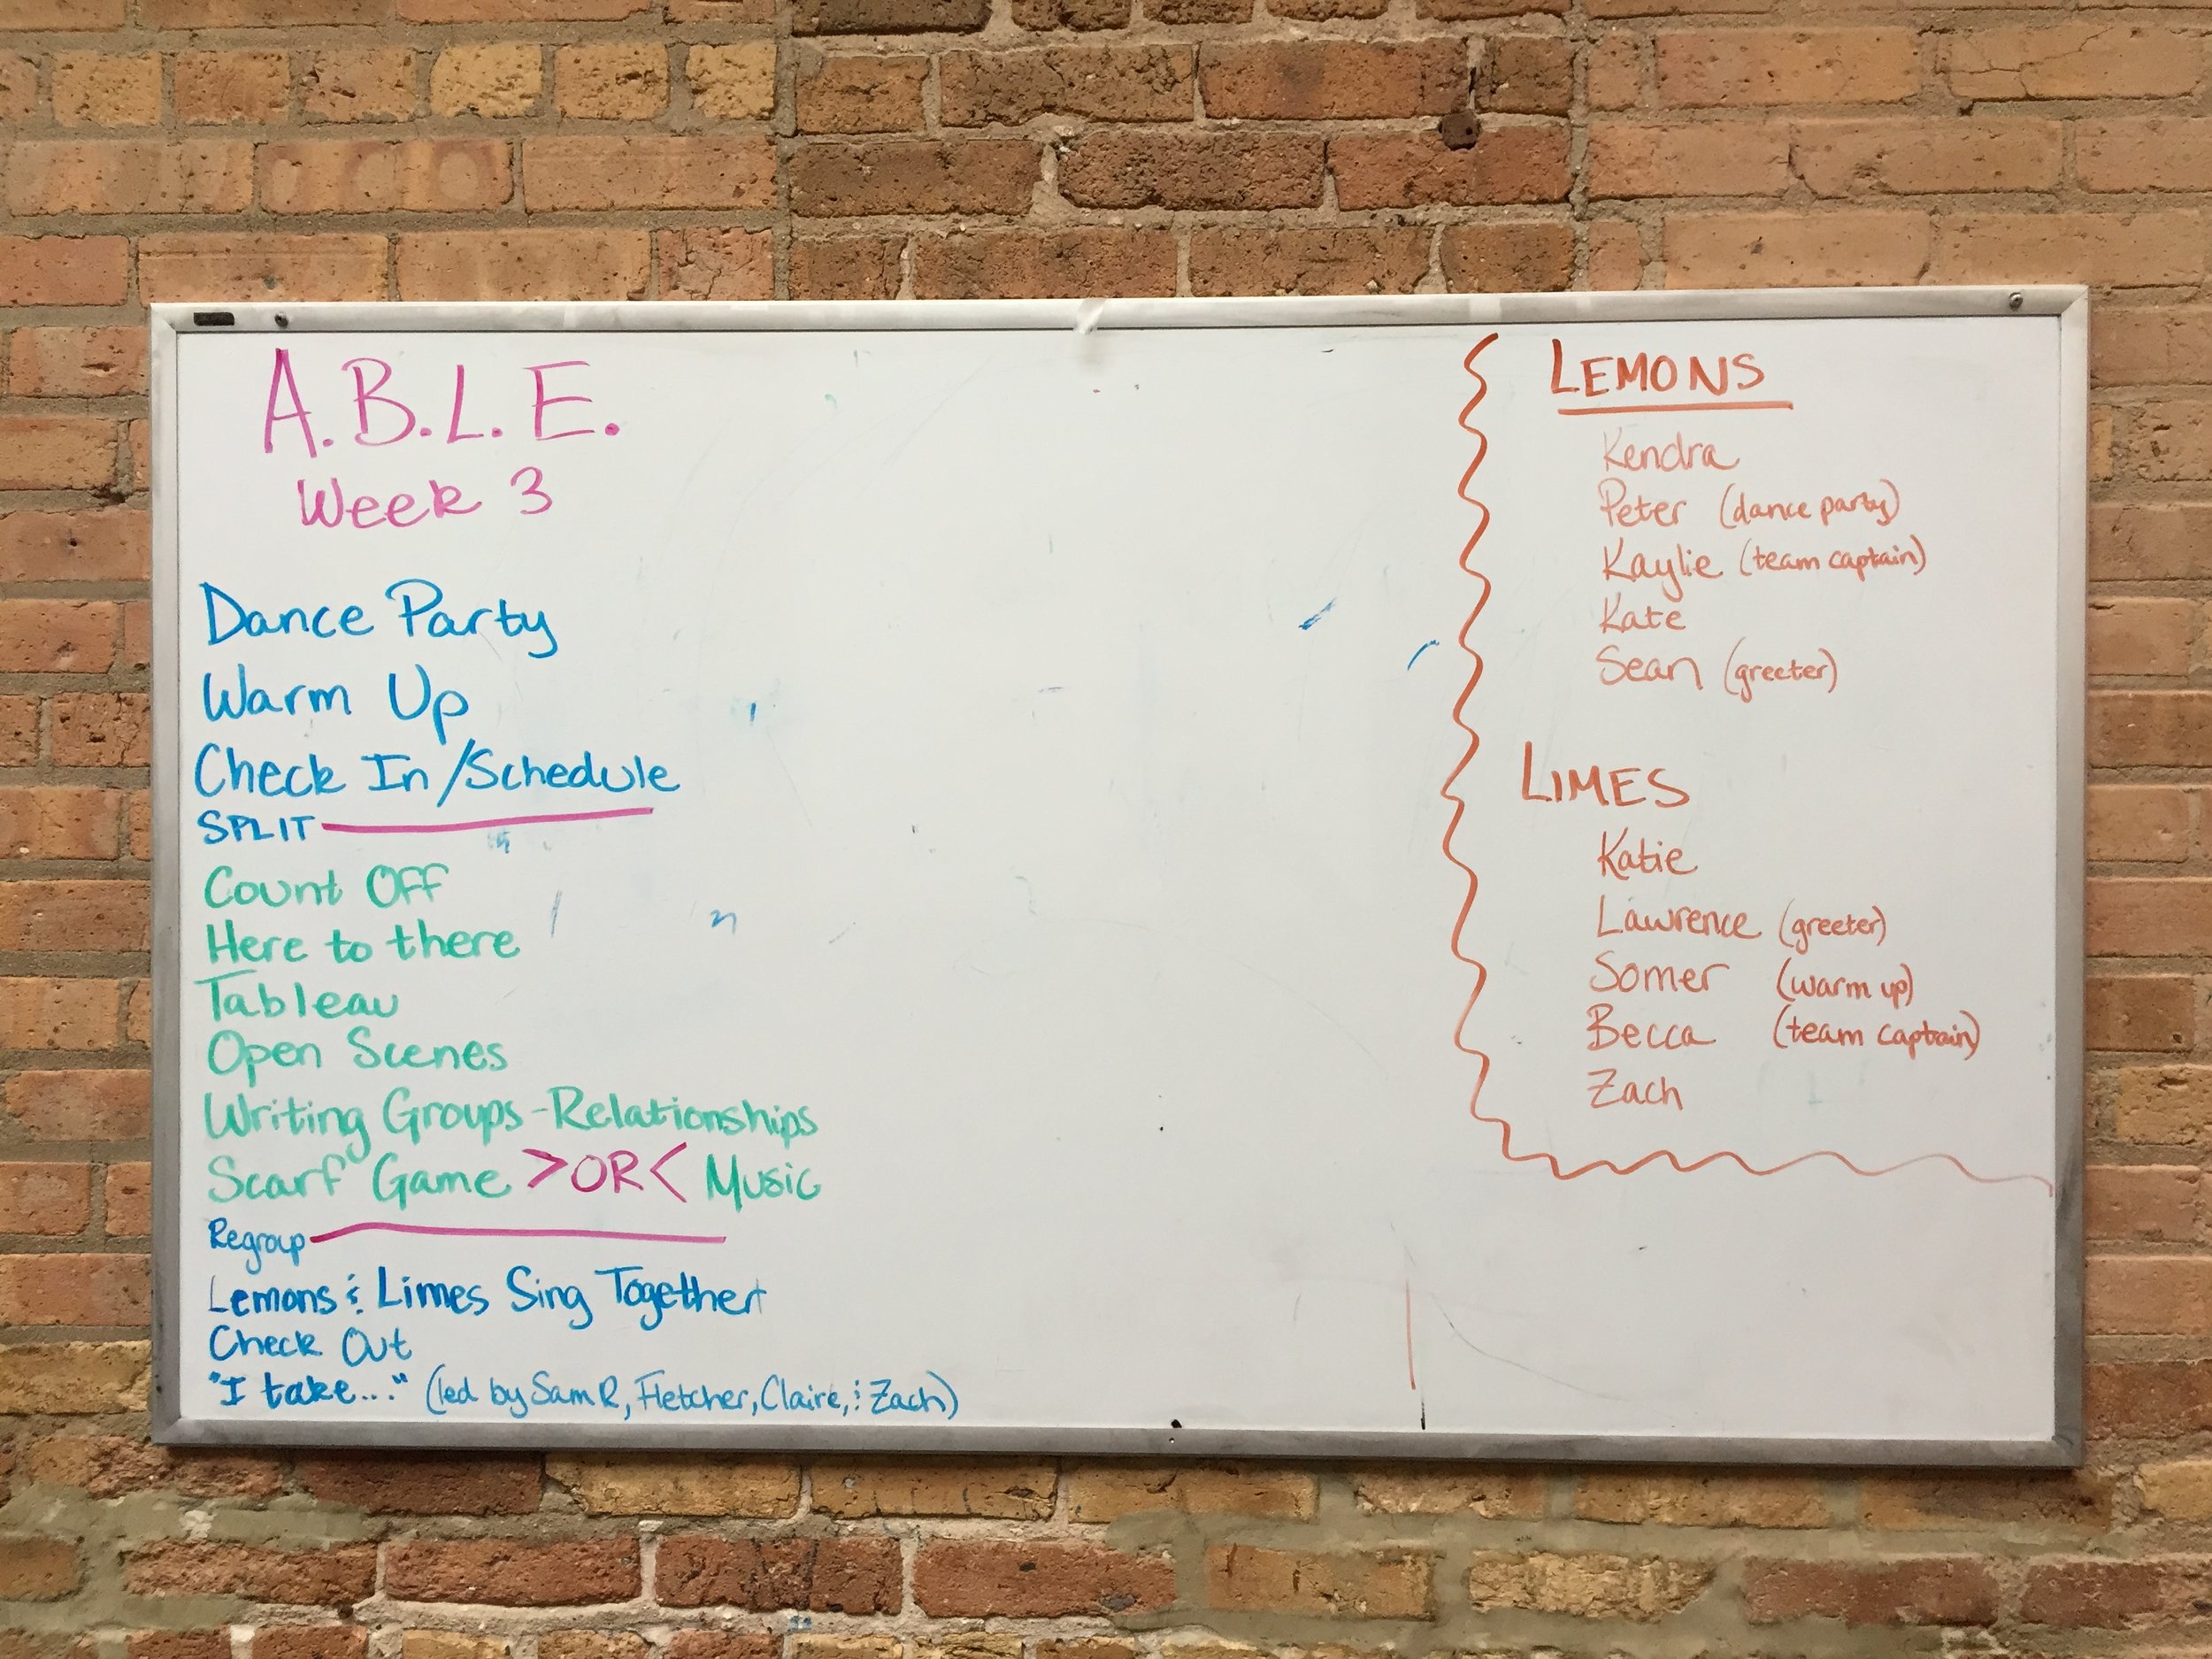 A.B.L.E.
Week 3
Dance Party
Warm Up
Check In/Schedule
SPLIT
Count Off
Here to there
Tableau
Open Scenes
Writing Groups-Relationships
Scarf Game >OR< Music
Regroup
Lemons & Limes Sing Together
Check Out
"I take..." (led by Sam R, Fletcher, Claire, & Zach)
LEMONS
Kendra
Peter (dance party)
Kaylie (team captain)
Kate
Sean (greeter)
LIMES
Katie
Lawrence (greeter)
Somer (warm up)
Becca (team captain)
Zach